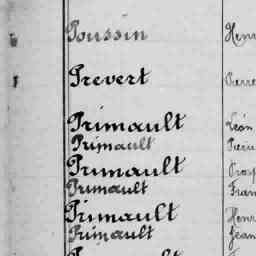 Poussin Henri
Prevert Pierre
Primault Léon
Primault Pierre
Primault
Primault Fran
Primault Henri
Primault Jean